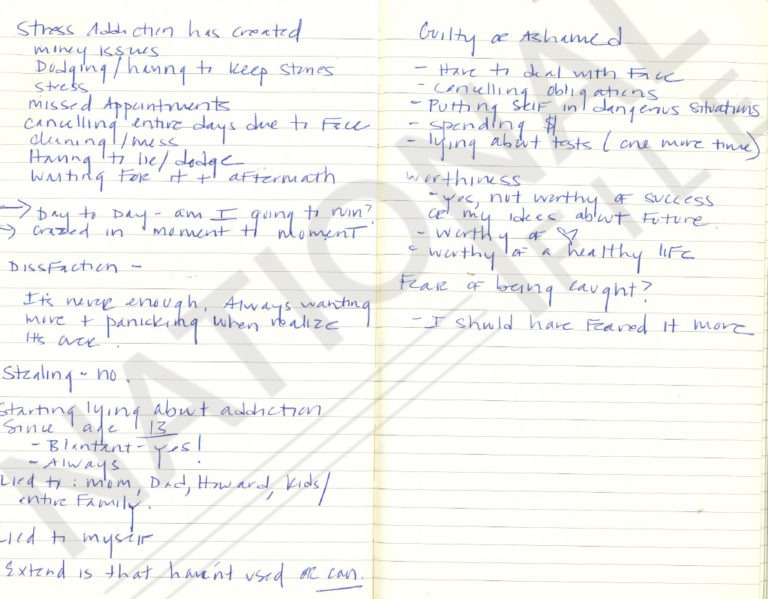 Stress Addiction has created
money issues
Dodging/having to keep stories
stress
missed Appointments
cancelling entire days due to Face
cleaning/mess
Having to lie/dodge
waiting for it + aftermath
→ Day to Day - am I going to ruin?
→ crazed in moment to moment
DissFaction -
It's never enough. Always wanting
more + panicking when realize
its over.
Stealing - no.
Starting lying about addiction
Since age 13
- Blantant - yes!
- Always
Lied to: mom, Dad, Howard, Kids/
entire Family.
Lied to myself
Extend is that haven't used or can.
Guilty or Ashamed
- Have to deal with Face
- cancelling obligations
- Putting self in dangerous situations
- spending $
- lying about tests (one more time)
worthiness
- yes, not worthy of success
or my ideas about future.
- worthy of ♡
- worthy of a healthy life
Fear of being caught?
- I should have feared it more
NATIONAL
FILE